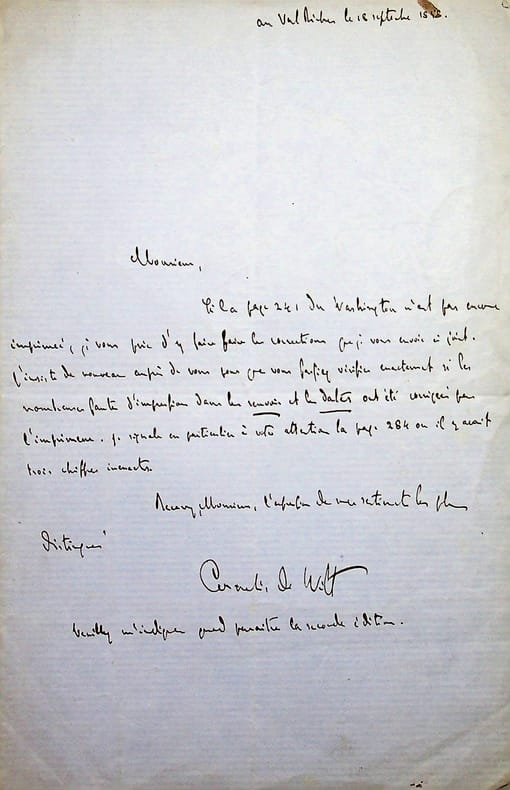 au Val Richer le 18 septembre
Monsieur,
Si la page 241 du Washington n'est pas encore
imprimée, je vous prie d'y faire faire les corrections que je vous envoie ci joint.
J'insiste de nouveau auprès de vous pour que vous fassiez vérifier exactement si les
nombreuses fautes d'impression dans les renvois et les dates ont été corrigées par
l'imprimeur. Je signale en particulier à votre attention la page 284 où il y avait
trois chiffres inexacts.
Recevez, Monsieur, l'expression de mes sentiments les plus
distingués
Cornelis de Witt
Veuillez m'indiquer quand paraîtra la seconde édition.